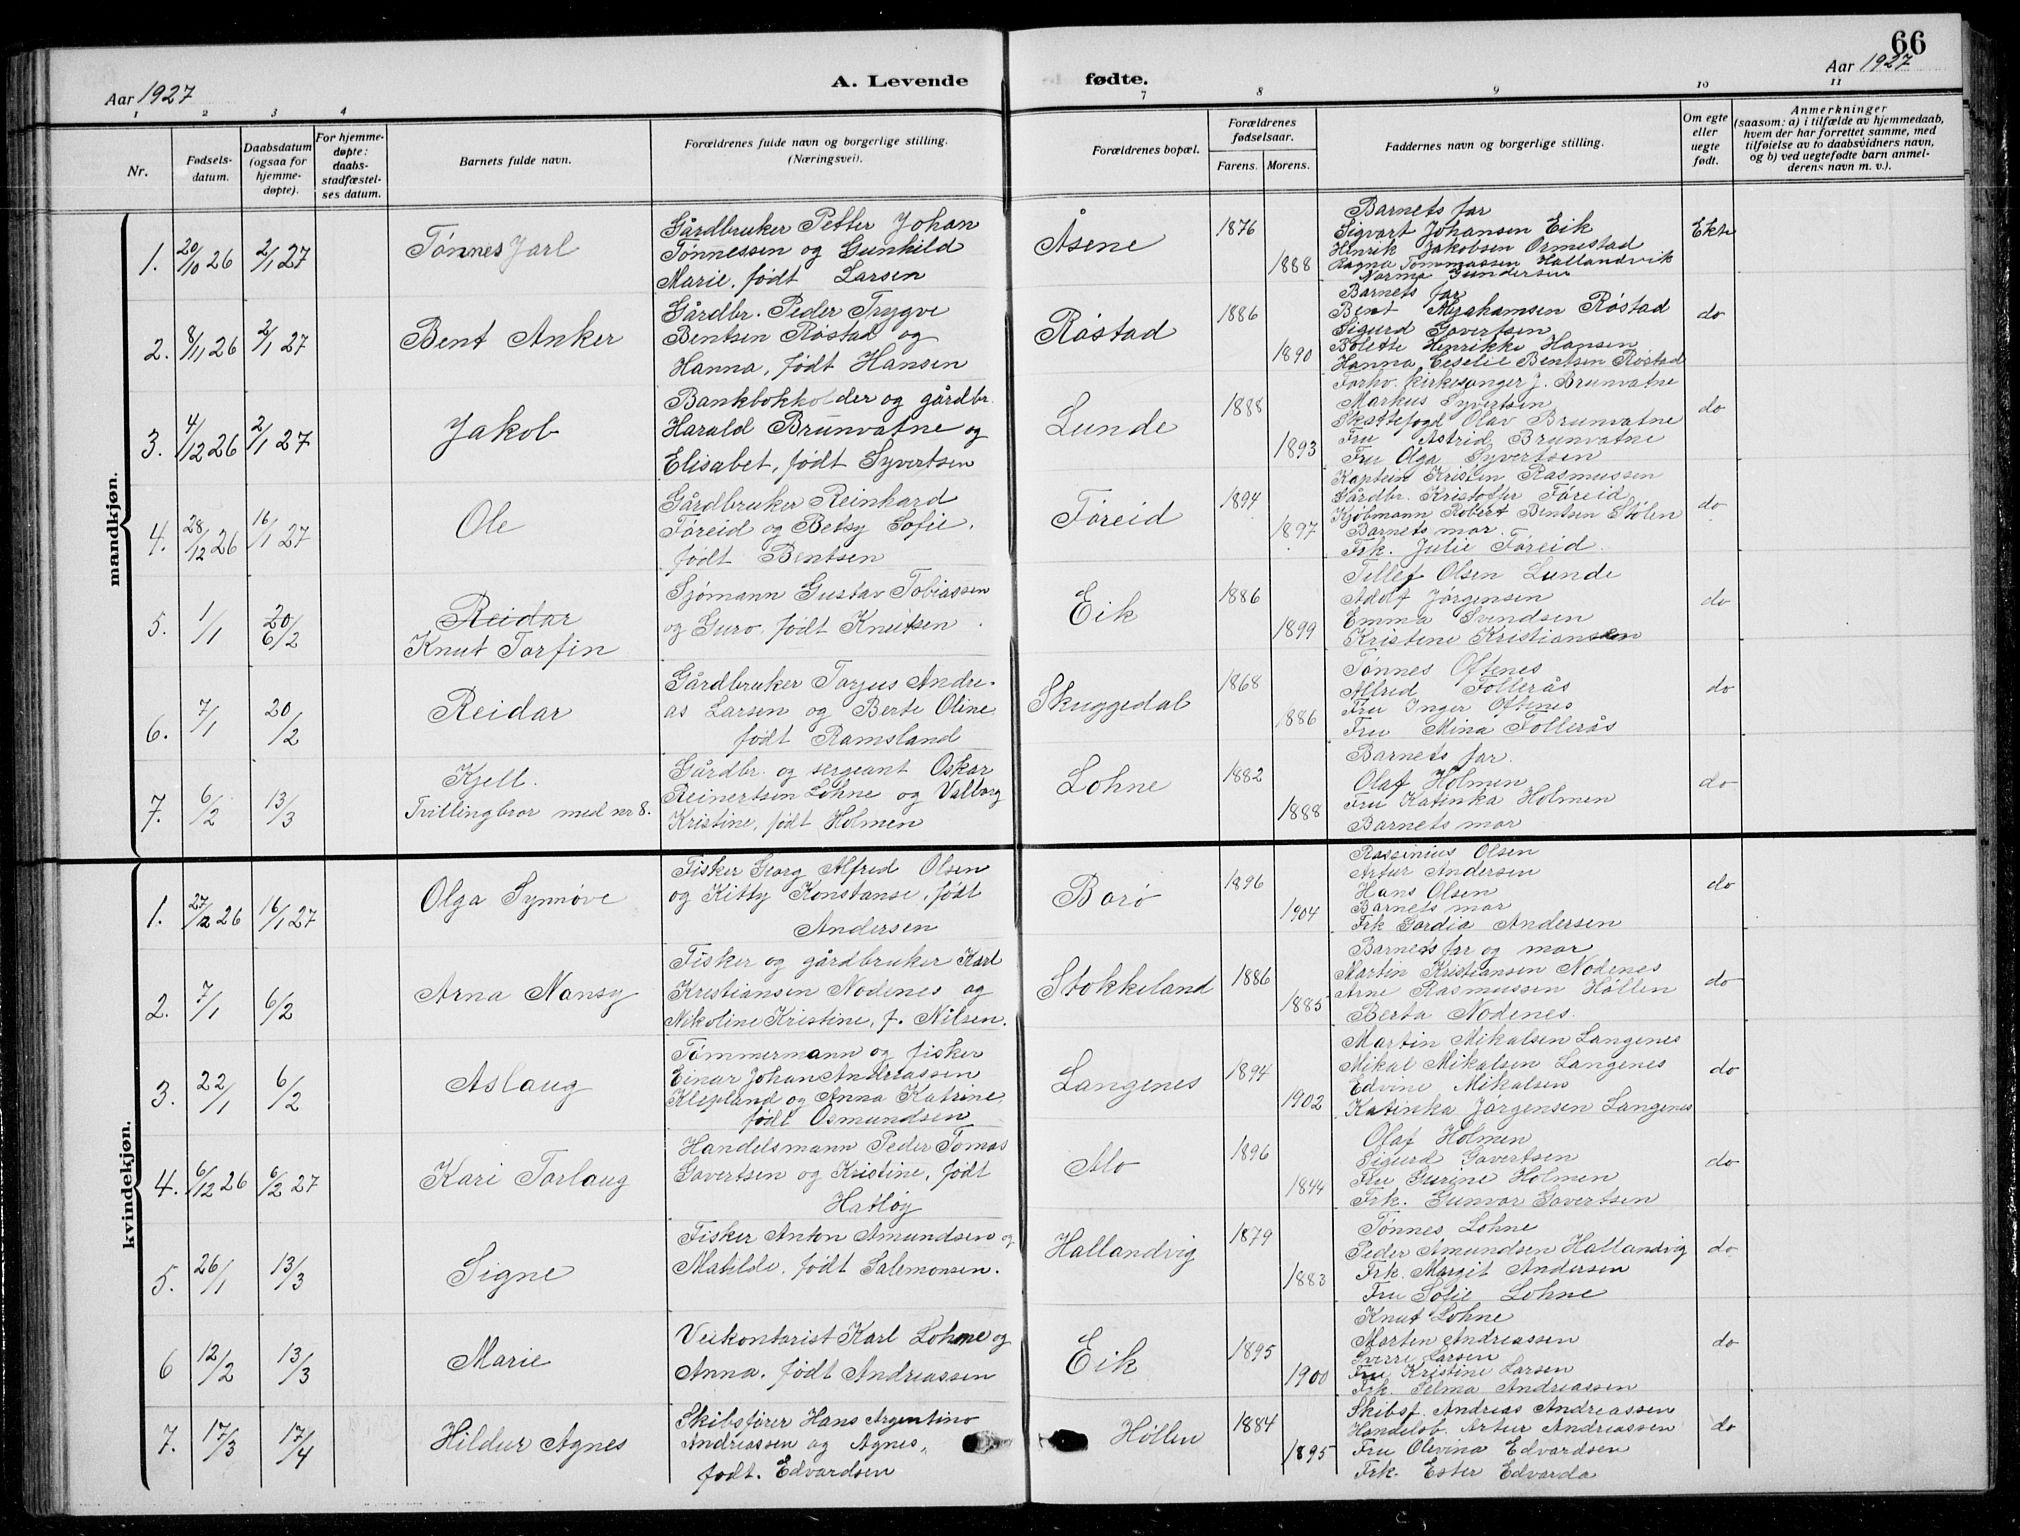 66
Aar 1927
A. Levende fødte.
Aar 1927
1 2 3 4 7 8 9 10 11
Nr.
Fødsels-
datum.
Daabsdatum
(ogsaa for
hjemme-
døpte).
For hjemme-
døpte:
daabs-
stadfæstel-
ses datum.
Barnets fulde navn.
Forældrenes fulde navn og borgerlige stilling.
(Næringsvei).
Forældrenes bopæl.
Forældrenes
fødselsaar.
Farens. Morens.
Faddernes navn og borgerlige stilling.
Om egte
eller
uegte
født.
Anmerkninger
(saasom: a) i tilfælde av hjemmedaab,
hvem der har forrettet samme, med
tilføielse av to daabsvidners navn,
og b) ved uegtefødte barn anmel-
derens navn m. v.).
mandkjøn.
1. 20/10 26 2/1 27 Tønnes Jarl
Gårdbruker Petter Johan
Tønnessen og Gunhild
Marie, født Larsen
Åsene 1876 1888
Barnets far
Sigvart Johansen Eik
Henrik Jakobsen Ormestad
Ragna Tommassen Hallandvik
Norma Gundersen
Ekte
2. 8/11 26 2/1 27 Bent Anker
Gårdbr. Peder Trygve
Bentsen Røstad og
Hanna, født Hansen
Røstad 1886 1890
Barnets far
Bent Abrahamsen Røstad
Sigurd Govertsen
Bolette Henrikke Hansen
Hanna Ceselie Bentsen Røstad
do
3. 4/12 26 2/1 27 Jakob
Bankbokholder og gårdbr.
Harald Brunvatne og
Elisabet, født Syvertsen
Lunde 1888 1893
Forhv. kirkesanger J. Brunvatne
Markus Syvertsen
Skattefogd Olav Brunvatne
Fru Astrid Brunvatne
Fru Olga Syvertsen
do
4. 28/12 26 16/1 27 Ole
Gårdbruker Reinhard
Tøreid og Betsy Sofie,
født Bentsen
Tøreid 1894 1897
Kaptein Kristen Rasmussen
Gårdbr. Kristoffer Tøreid
Kjøbmann Robert Bentsen Stølen
Barnets mor
Frk. Julie Tøreid.
do
5. 1/1 20 6/2 Reidar
Knut Torfin
Sjømann Gustav Tobiassen
og Guro, født Knutsen.
Eik 1886 1899
Tellef Olsen Lunde
Adolf Jørgensen
Emma Svendsen
Kristine Kristiansen
do
6. 7/1 20/2 Reidar
Gårdbruker Torjus Andre-
as Larsen og Berte Oline
født Ramsland
Skuggedal 1868 1886
Tønnes Oftenes
Alfred Follerås
Fru Inger Oftenes
Fru Mina Follerås
do
7. 6/2 13/3 Kjell.
Tvillingbror med nr 8.
Gårdbr. og sergeant Oskar
Reinertsen Lohne og Valborg
Kristine, født Holmen
Lohne 1882 1888
Barnets far.
Olaf Holmen
Fru Katinka Holmen
Barnets mor
do
kvindekjøn.
1. 27/12 26 16/1 27 Olga Synnøve
Fisker Georg Alfred Olsen
og Kitty Konstanse, født
Andersen
Borø 1896 1904
Rassinius Olsen
Artur Andersen
Hans Olsen
Barnets mor
Frk Gordia Andersen
do
2. 7/1 6/2 Arna Nansy
Fisker og gårdbruker Karl
Kristiansen Nodenes og
Nikoline Kristine, f. Nilsen.
Stokkeland 1886 1885
Barnets far og mor
Martin Kristiansen Nodenes
Arne Rasmussen Høllen
Berta Nodenes.
do
3. 22/1 6/2 Aslaug
Tømmermann og fisker
Einar Johan Andreassen
Klepland og Anna Katrine,
født Osmundsen
Langenes 1894 1902
Martin Mikalsen Langenes
Mikal Mikalsen Langenes
Edvine Mikalsen
Katinka Jørgensen Langenes
do
4. 6/12 26 6/2 27 Kari Torlaug
Handelsmann Peder Tomas
Govertsen og Kristine, født
Hatløy
Alo 1896 1844
Olaf Holmen
Sigurd Govertsen
Fru Gurine Holmen
Frk. Gunvor Govertsen
do
5. 26/1 13/3 Signe
Fisker Anton Amundsen og
Matilde, født Salemonsen.
Hallandvig 1879 1883
Tønnes Lohne
Peder Amundsen Hallandvig
Frk. Margit Andersen
Fru Sofie Lohne
do
6 12/2 13/3 Marie
Veikontorist Karl Lohne og
Anna, født Andreassen
Eik 1895 1900
Knut Lohne
Marten Andreassen
Sverre Larsen
Fru Kristine Larsen
Frk. Selma Andreassen
do
7. 17/3 17/4 Hildur Agnes
Skibsfører Hans Argentino
Andreassen og Agnes,
født. Edvardsen
Høllen 1884 1895
Skibsf. Andreas Andreassen
Handelsb. Artur Andreassen
Fru Olevina Edvardsen
Frk. Ester Edvarda
do